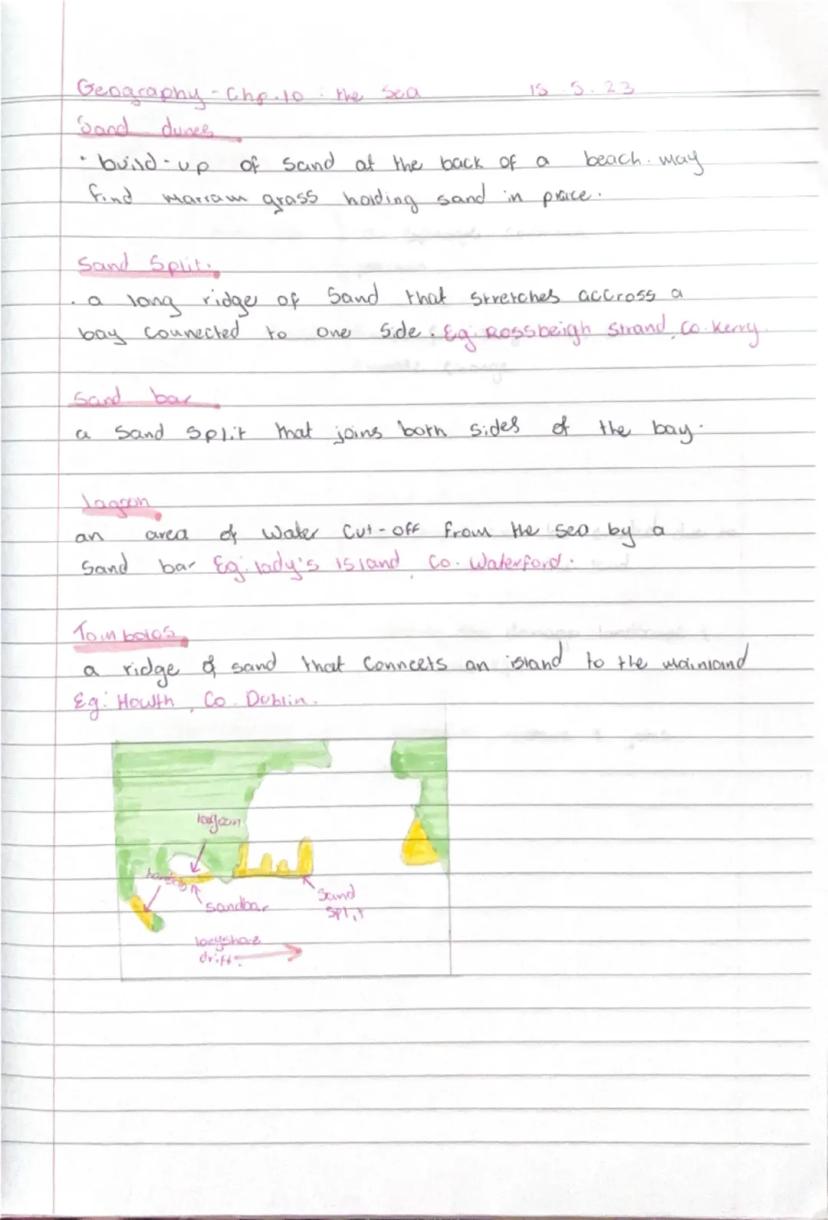 Geography - Chp.10 : the Sea 15 . 5 . 23
Sand dunes
· build-up of sand at the back of a beach. may
find marram grass holding sand in place.
Sand Split.
. a long ridge of Sand that stretches accross a
bay connected to one side. Eg: Rossbeigh strand, Co. Kerry.
Sand bar
a Sand Split that joins both sides of the bay.
Lagoon
an area of water cut-off from the sea by a
Sand bar Eg: lady's island, Co. Waterford.
Tombolo's
a ridge of sand that connects an island to the mainland
Eg: Howth, Co. Dublin.
lagoon
sandbar
Sand
Split
longshore
drift.